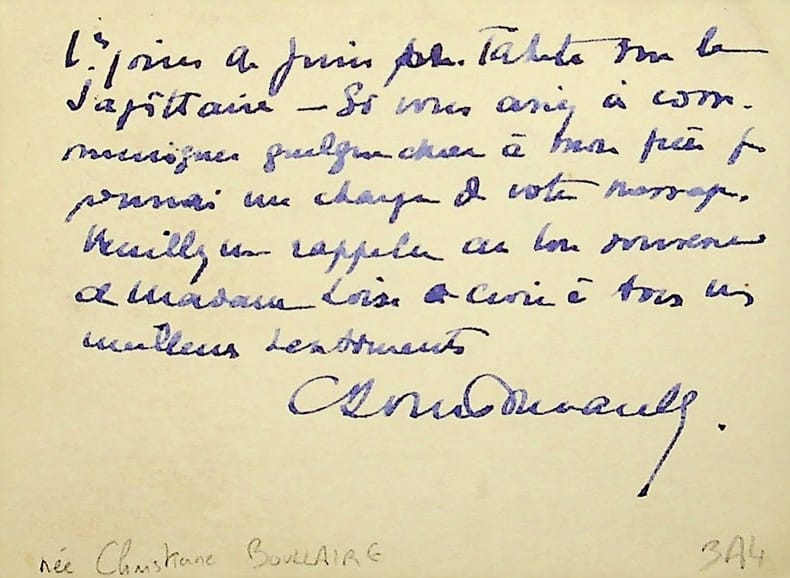 1ers jours de Juin pr. Tahiti sur le
Sagittaire – Si vous aviez à com-
muniquer quelque chose à mon frère je
pourrais me charger de votre message.
Veuillez me rappeler au bon souvenir
de Madame Loize & croire à tous mes
meilleurs sentiments
née Christiane BOULLAIRE
3A4